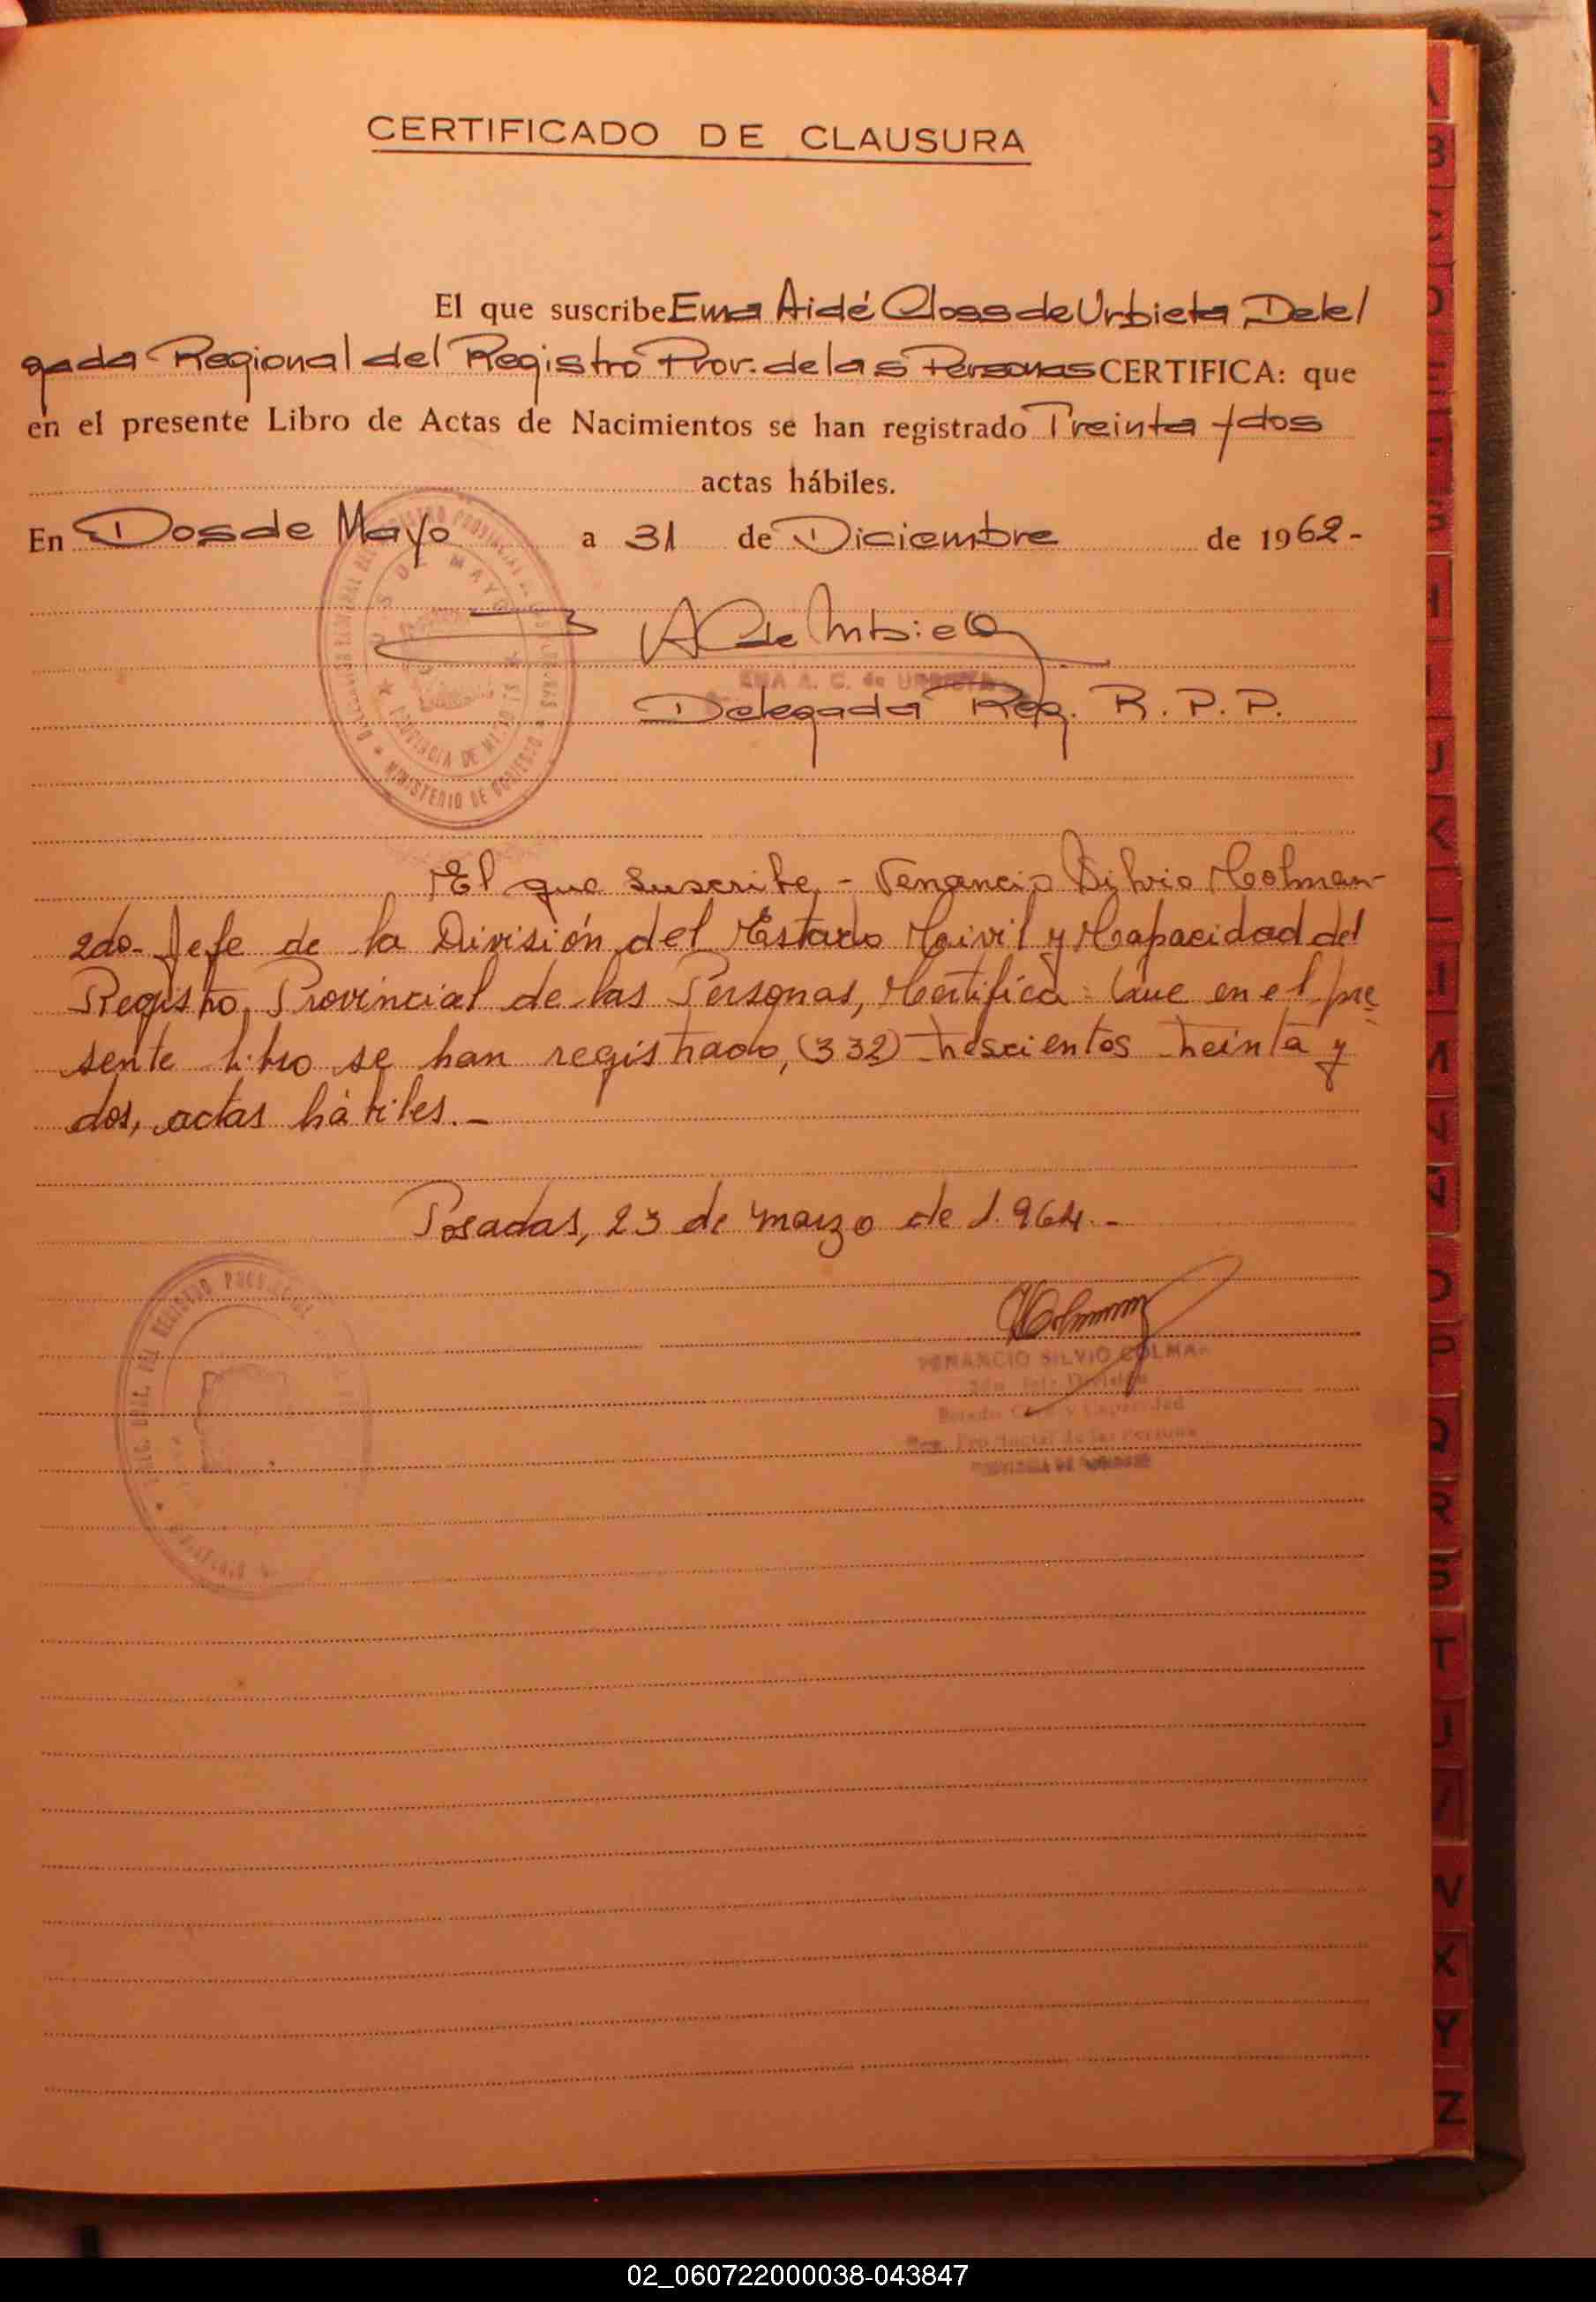 CERTIFICADO DE CLAUSURA
El que suscribe Ema Aidé Closs de Urbieta, Dele/
gada Regional del Registro Prov. de las Personas CERTIFICA: que
en el presente Libro de Actas de Nacimientos se han registrado Treinta y dos
actas hábiles.
En Dos de Mayo a 31 de Diciembre de 1962-
DOS DE MAYO
PROVINCIA DE MISIONES
MINISTERIO DE GOBIERNO
A C de Urbieta
EMA A. C. de URBIETA
Delegada Reg. R. P. P.
El que suscribe - Venancio Silvio Colman-
2do- Jefe de la División del Estado Civil y Capacidad del
Registro, Provincial de las Personas, Certifica: Que en el pre
sente libro se han registrado, (332) trescientos treinta y
dos, actas hábiles.-
Posadas, 23 de marzo de 1.964.-
Colman
VENANCIO SILVIO COLMAN
2do. Jefe División
Estado Civil y Capacidad
Reg. Provincial de las Personas
PROVINCIA DE MISIONES
B
D
H
I
J
K
L
O
P
Q
R
S
T
U
V
X
Y
Z
02_060722000038-043847